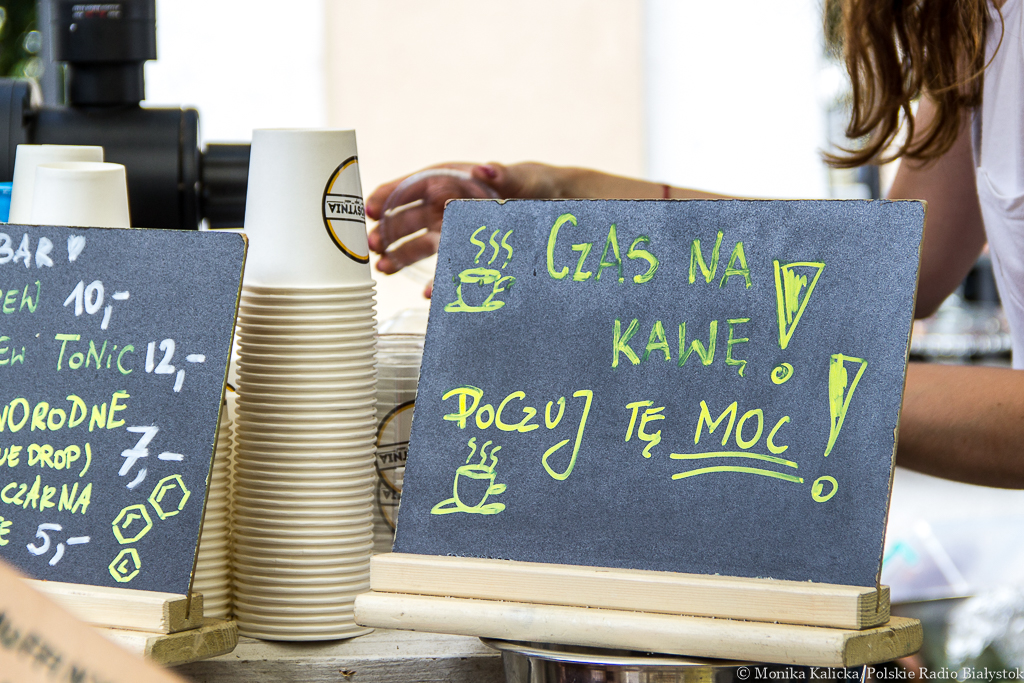 BAR
10,-
TONIC 12,-
7,-
DROP)
CZARNA
5,-
CZAS NA
KAWĘ!
POCZUJ TĘ MOC!
© Monika Kalicka/Polskie Radio Białystok